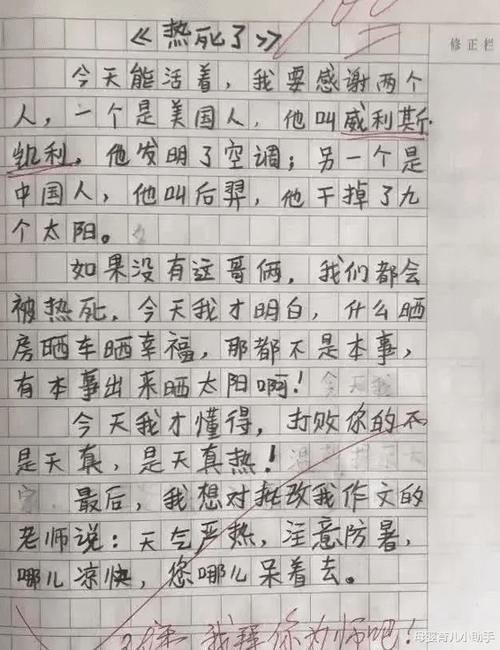 《热死了》
修正栏
今天能活着，我要感谢两个
人，一个是美国人，他叫威利斯·
凯利，他发明了空调；另一个是
中国人，他叫后羿，他干掉了九
个太阳。
如果没有这哥俩，我们都会
被热死，今天我才明白，什么晒
房晒车晒幸福，那都不是本事，
有本事出来晒太阳啊！
今天我才懂得，打败你的不
是天真，是天真热！
最后，我想对批改我作文的
老师说：天气严热，注意防暑，
哪儿凉快，您哪儿呆着去。
我拜你为师吧！
母婴育儿小助手